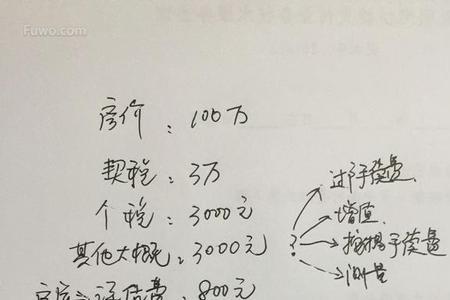 Fuwo.com
房价：100万
契税：3万
个税：3000元
其他大概：3000元
800元
?
过户手续费
增值
按揭手续费
测量